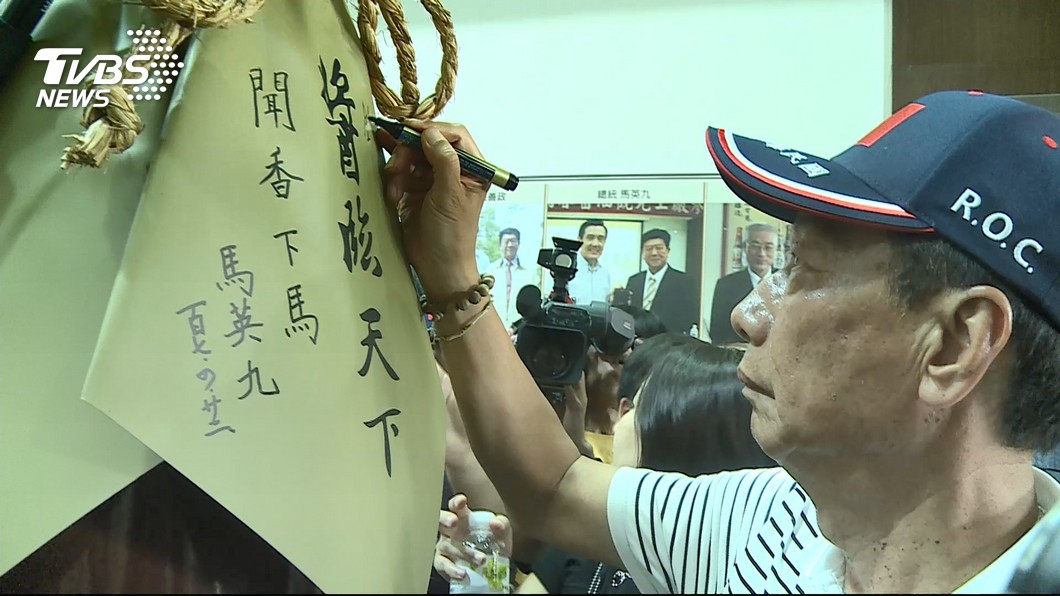 TVBS
NEWS
醬臨天下
聞香下馬
馬英九
善政
總統 馬英九
R.O.C.